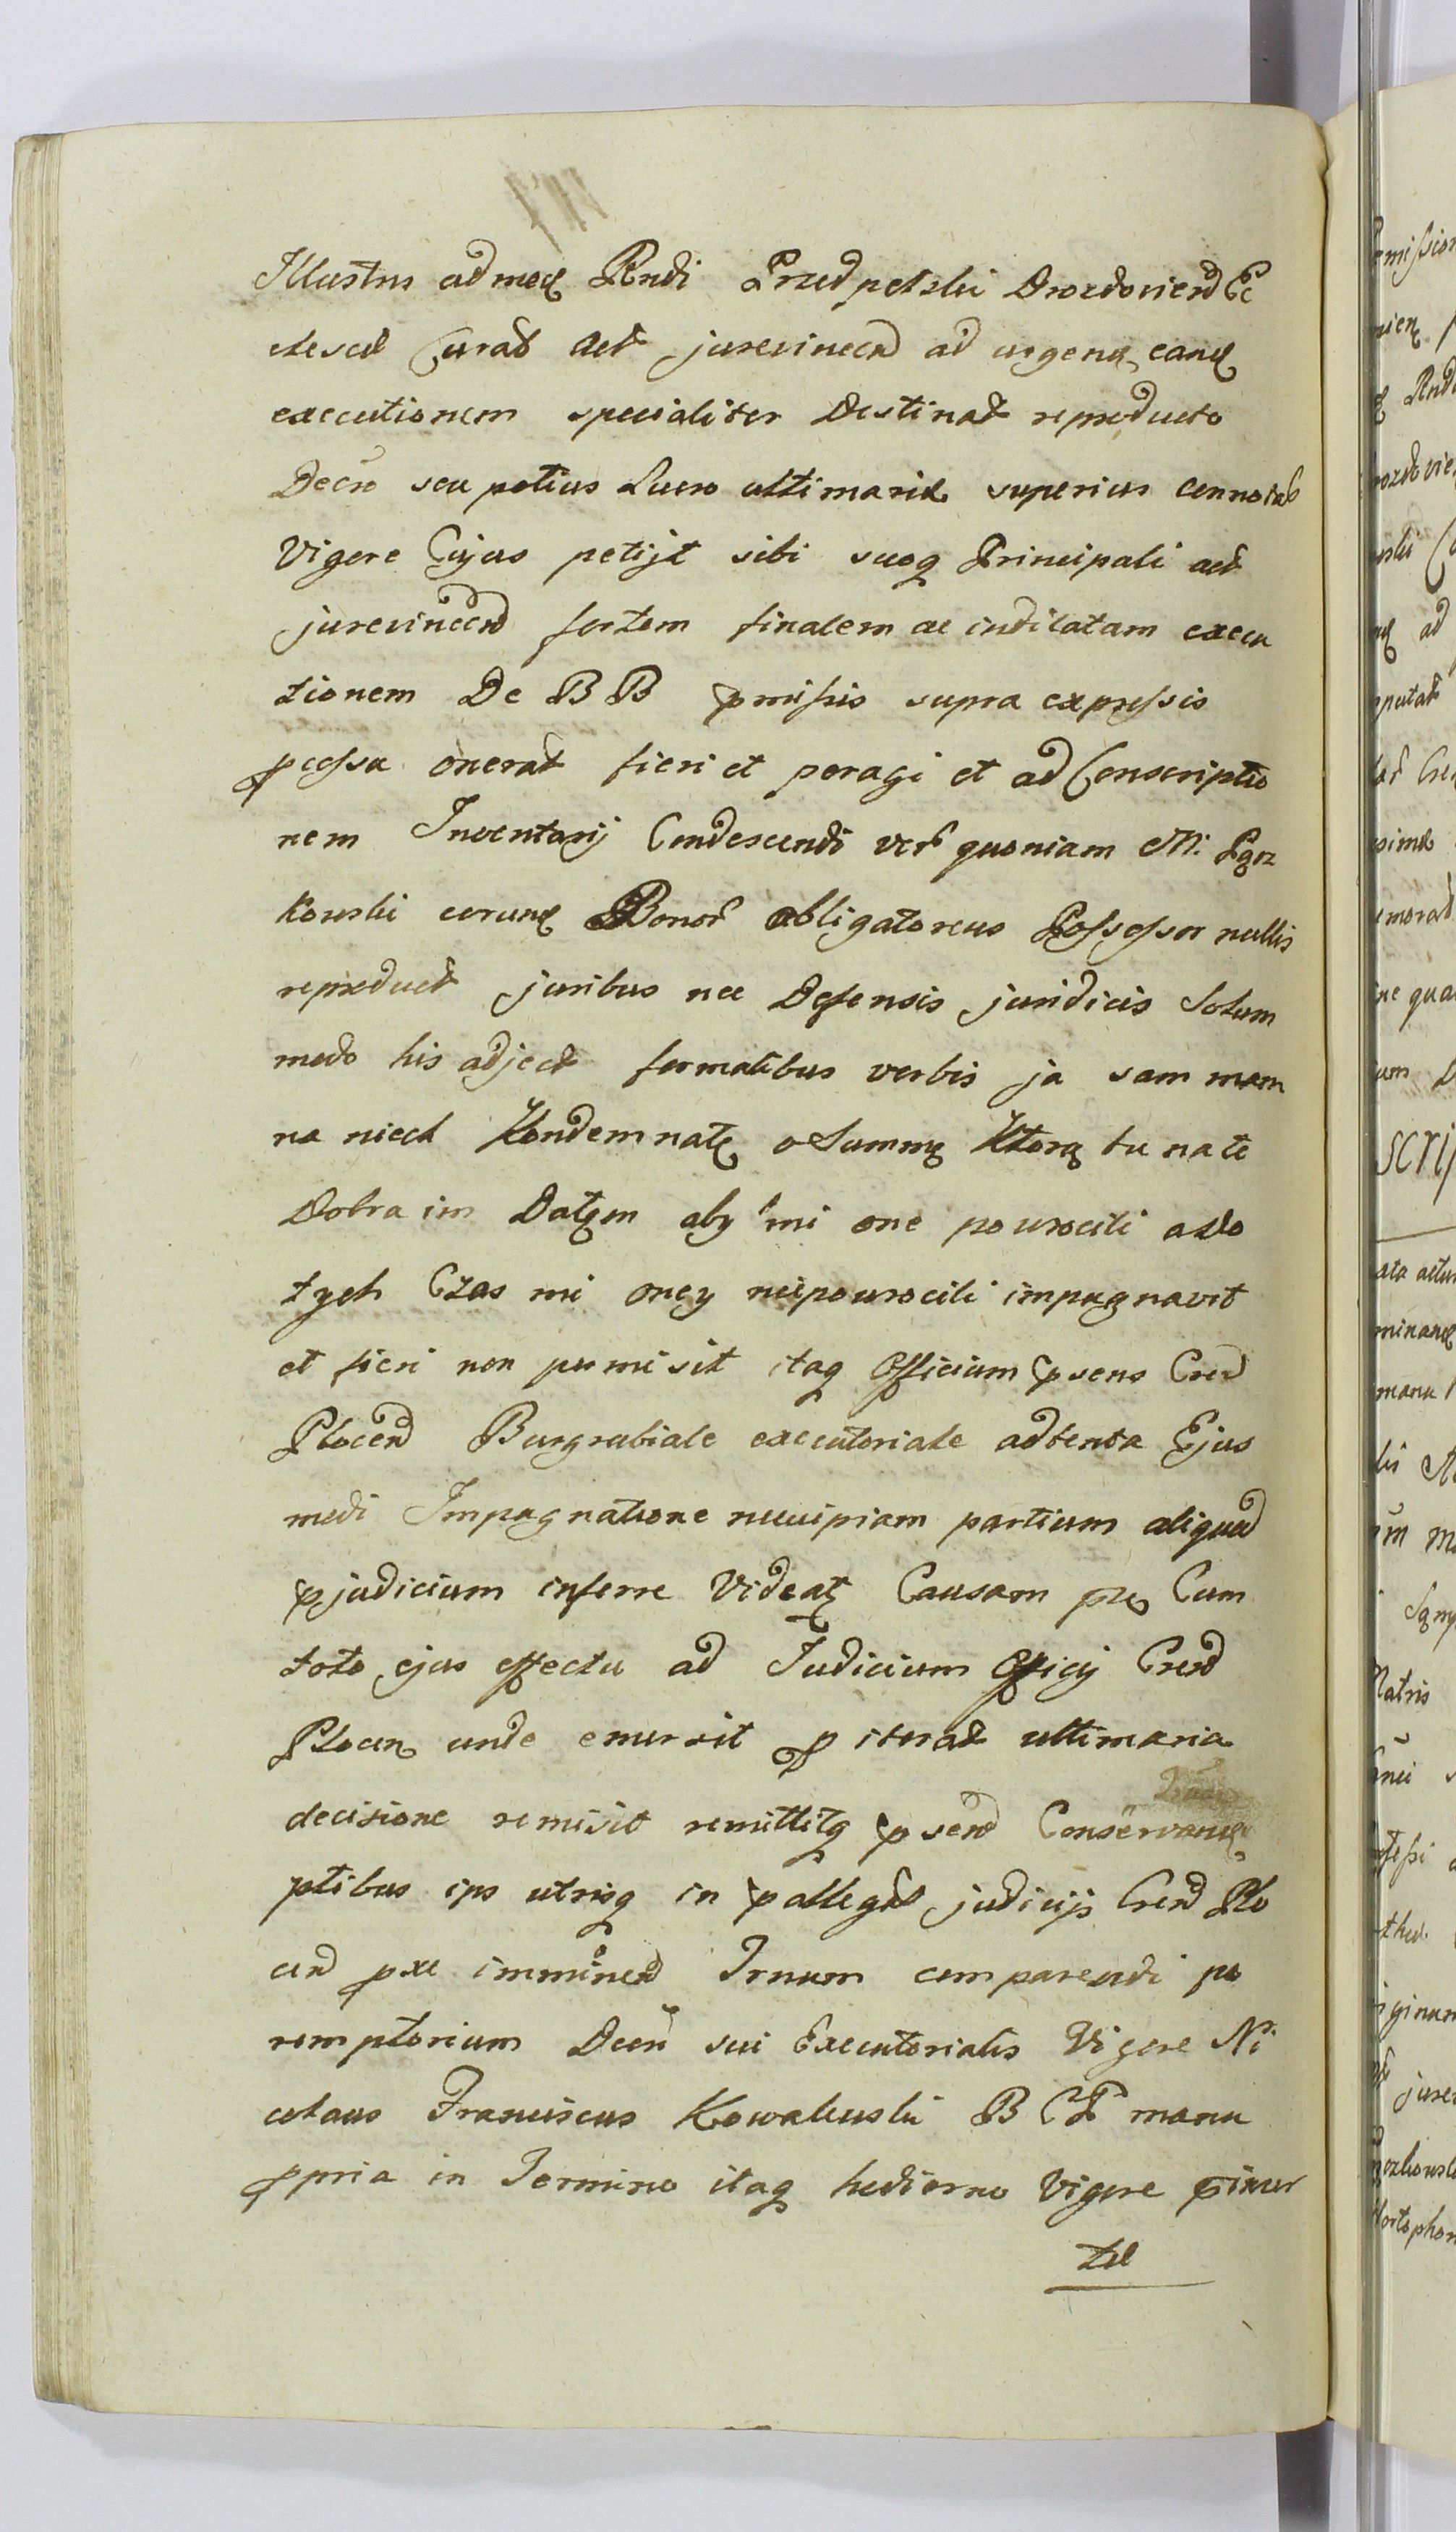 Illustris admeq Rndi Przedpelski Drozdoviend Ec
clesiæ Curat Act jurevincend ad urgenq eanq
executionem specialiter Destinat reproducto
Decro seu potius Lucro ultimariæ superius connotat
Vigore Cujus petijt sibi suoq Principali act
jurevincend fortem finalem ac indilatam execu
tionem De BB pmissis supra expressis
pcessa onerat fieri et peragi et ad Conscriptio
nem Inventarij Condescendi vert quoniam M:
kowski eorunq Bonor obligatoreus Possessor nullis
reproduct juribus nec Defensis juridicis Solum
modo his adject formalibus verbis ja sam mam
na niech Kondemnatę o Summę Ktorą tu na te
Dobra im Datęm aby mi one powrocili a do
tych Czas mi oney niepowrocili impugnavit
et fieri non permisit itaq Officium psens Crend
Plocend Burgrabiale executoriale adtenta Ejus
modi Impugnatione necuipiam partium aliquod
pjudicium inferre Videatq Causam prq Cum
toto ejus effectu ad Judicium Officij Crend
Plocen unde emersit p iterat ultimaria
decisione remisit remittitq psend Conservanq
ptibus ips utrisq in pallegat judicijs Crend Plo
cend pxe imminend Trnum comparendi pe
remptorium Decri sui Executorialis Vigore Ni
colaus Franciscus Kowalewski B C P manu
ppria in Termino itaq hodierno Vigore